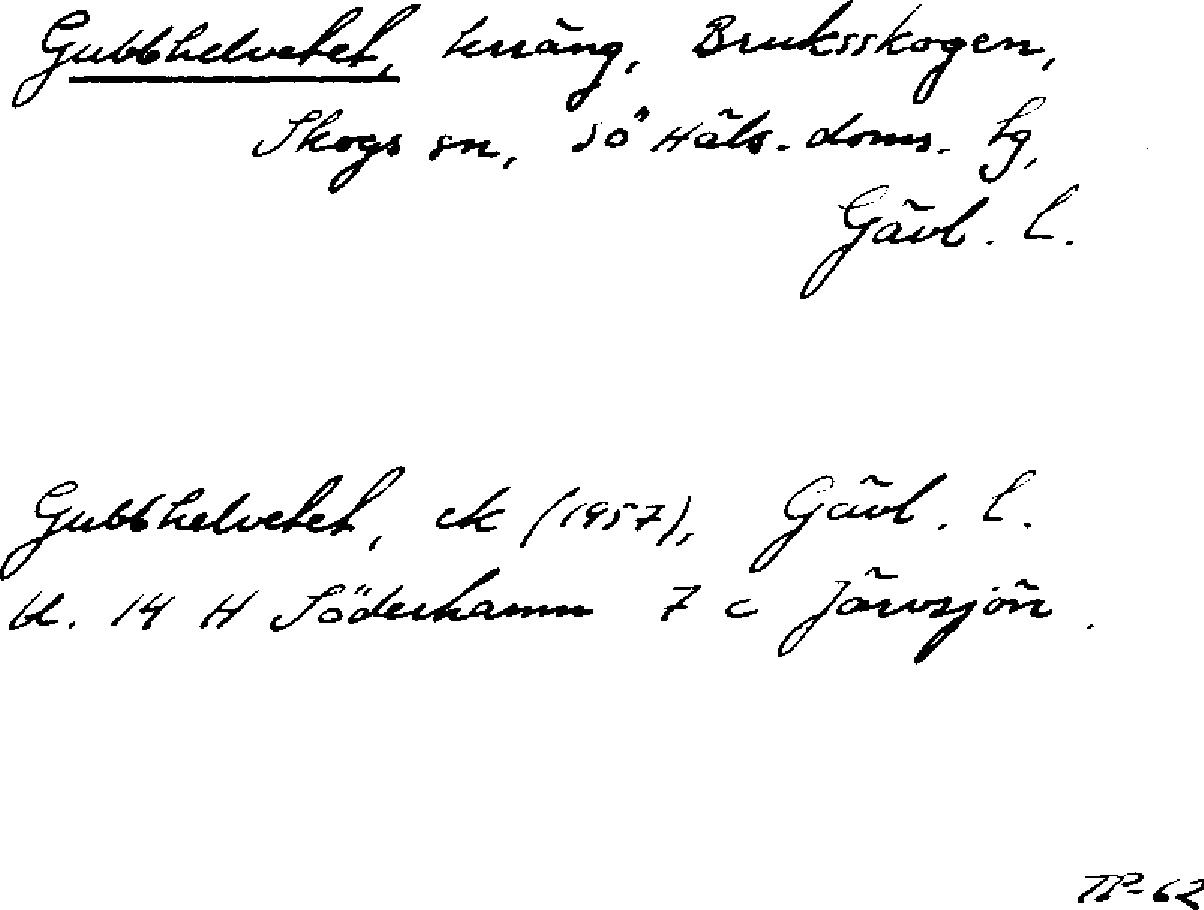 Gubbhelvetet, terräng, Bruksskogen,
Skogs sn, Sö Häls. doms. tg,
Gävl. l.
Gubbhelvetet, ek (1957), Gävl. l.
bl. 14 H Söderhamn 7 c Järvsjön.
TP-62